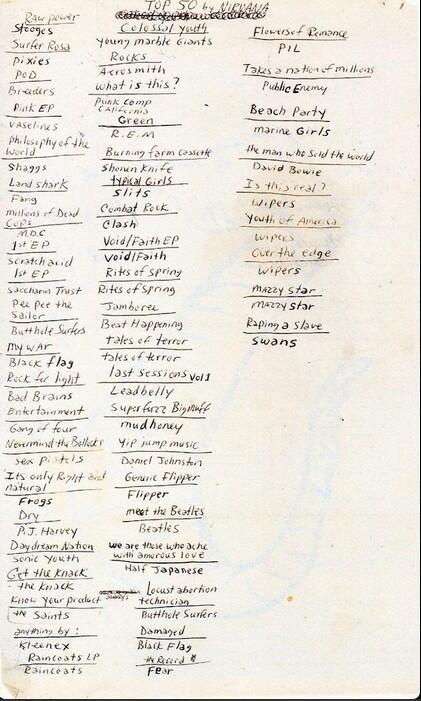 TOP 50 by NIRVANA
Raw power
Stooges
Surfer Rosa
Pixies
POD
Breeders
Pink EP
Vaselines
Philosophy of the
World
Shaggs
Land shark
Fang
millions of Dead
Cops
M.D.C
1st EP
Scratch acid
1st EP
Saccharin Trust
Pee pee the
Sailor
Butthole Surfers
My WAr
Black flag
Rock for light
Bad Brains
Entertainment
Gang of four
Nevermind the Bollocks
sex Pistols
Its only Right and
natural
Frogs
Dry
P.J. Harvey
Daydream Nation
Sonic Youth
Get the Knack
the Knack
Know your product
the Saints
anything by:
Kleenex
Raincoats LP
Raincoats
Colossal youth
young marble Giants
Rocks
Aerosmith
What is this?
Punk Comp
California
Green
R.E.M
Burning farm cassette
Shonen Knife
typical Girls
Slits
Combat Rock
Clash
Void/Faith EP
Void/Faith
Rites of Spring
Rites of Spring
Jamboree
Beat Happening
tales of terror
tales of terror
last sessions vol 1
Leadbelly
Superfuzz Bigmuff
mudhoney
Yip jump music
Daniel Johnston
Generic Flipper
Flipper
meet the Beatles
Beatles
we are those who ache
with amorous love
Half Japanese
Locust abortion
technician
Butthole Surfers
Damaged
Black Flag
the Record
Fear
Flowers of Romance
PIL
Takes a nation of millions
Public Enemy
Beach Party
marine Girls
the man who sold the world
David Bowie
Is this real?
Wipers
Youth of America
Wipers
Over the edge
Wipers
mazzy star
mazzy star
Raping a slave
Swans